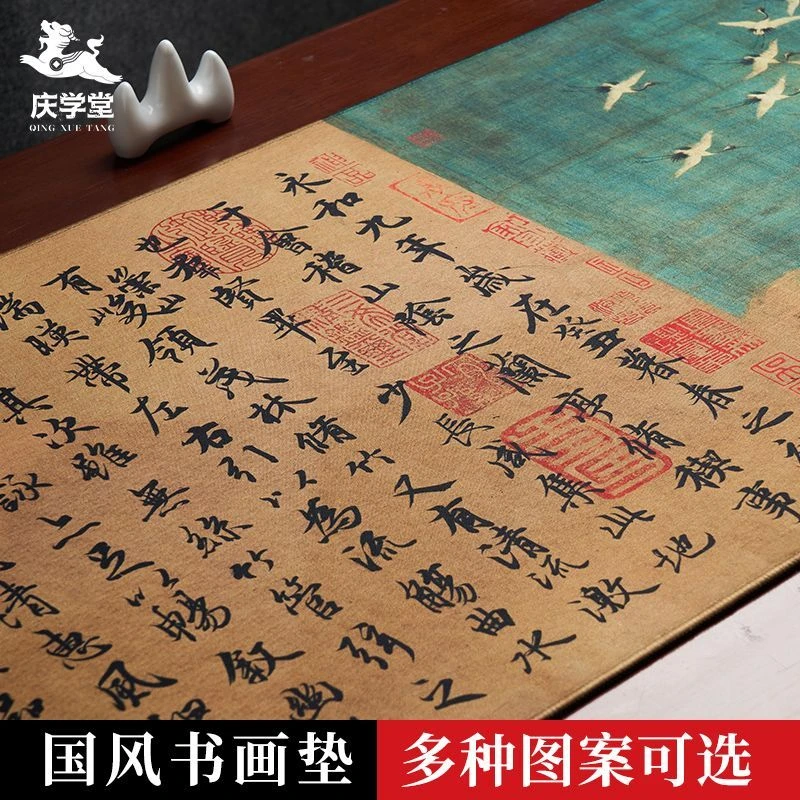 庆学堂
QING XUE TANG
永和九年歲在癸丑暮春之
于會稽山陰之蘭亭脩稧事
也羣賢畢至少長咸集此地
有崇山峻領茂林脩竹又有清流激
湍暎帶左右引以為流觴曲水
其次雖無絲竹管弦之
詠亦足以暢敘幽
清惠風
国风书画垫
多种图案可选